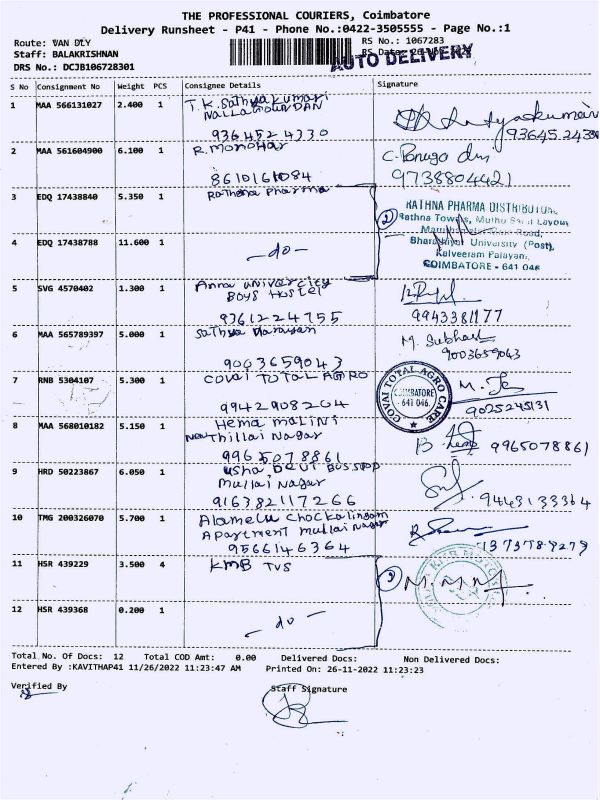 THE PROFESSIONAL COURIERS, Coimbatore
Delivery Runsheet - P41 - Phone No.:0422-3505555 - Page No.:1
Route: VAN DLY
RS No.: 1067283
Staff: BALAKRISHNAN
AUTO DELIVERY
DRS No.: DCJB106728301
S No Consignment No Weight PCS Consignee Details Signature
1 MAA 566131027 2.400 1 T.K. Sathya Kumari
NALLAGOUNDAN
9364524330
2 MAA 561604900 6.100 1 R. Monohar
8610161084
9738804421
3 EDQ 17438840 5.350 1 Rathona Pharma
2
RATHNA PHARMA DISTRIBUTORS
Rathna Towers, Muthu Layout
Road,
Bharathiyar University (Post),
Kalveeram Palayam,
COIMBATORE - 641 046
4 EDQ 17438788 11.600 1 -do-
5 SVG 4570402 1.300 1 Anna univercity
Boys Hostel
9361224755
9943381177
6 MAA 565789397 5.000 1 Sathya Narayan
9003659043
M. Subhash
9003659043
7 RNB 5304107 5.300 1 COVAI TOTAL AGRO
9942908204
COVAI TOTAL AGRO CARE
COIMBATORE
- 641 046.
9025245131
8 MAA 568010182 5.150 1 Hema malini
near Thillai Nagar
9965078861
9965078861
9 HRD 50223867 6.050 1 usha Devi Bus stop
mullai Nagar
916382117266
9443133364
10 TMG 200326070 5.700 1 Alamelu Chockalingam
Apartment mullai Nagar
9566146364
11 HSR 439229 3.500 4 KMB TVS
2
12 HSR 439368 0.200 1 -do-
Total No. Of Docs: 12 Total COD Amt: 0.00 Delivered Docs: Non Delivered Docs:
Entered By :KAVITHAP41 11/26/2022 11:23:47 AM Printed On: 26-11-2022 11:23:23
Verified By
Staff Signature